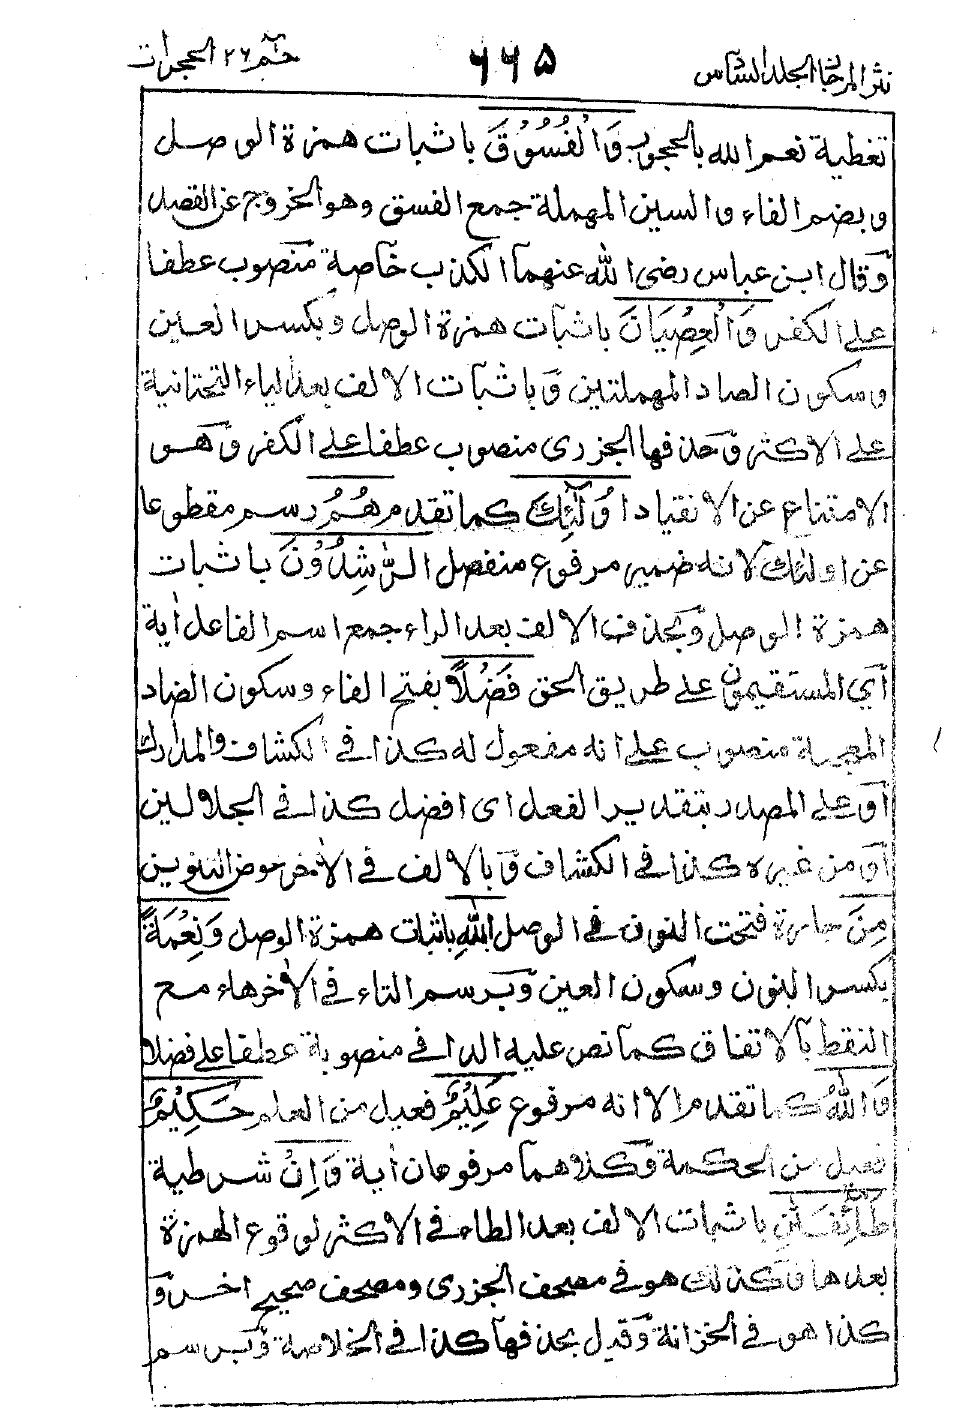 نثر المرجان المجلد السادس ٦٦٥ حم ٢٦ الحجرات
تغطية نعم الله بالجحود وَالْفُسُوْقَ باثبات همزة الوصل
وبضم الفاء والسين المهملة جمع الفسق وهو الخروج عن القصد
وقال ابن عباس رضى الله عنهما الكذب خاصة منصوب عطفا
على الكفر وَالْعِصْيَانَ باثبات همزة الوصل وبكسر العين
وسكون الصاد المهملتين وباثبات الالف بعد الياء التحتانية
على الاكثر وحذفها الجزرى منصوب عطفا على الكفر وهو
الامتناع عن الانقياد اُولٰٓئِكَ كما تقدم هُمُ رسم مقطوعا
عن اولئك لانه ضمير مرفوع منفصل الرّٰشِدُوْنَ باثبات
همزة الوصل وبحذف الالف بعد الراء جمع اسم الفاعل اٰية
اي المستقيمون على طريق الحق فَضْلًا بفتح الفاء وسكون الضاد
المعجمة منصوب على انه مفعول له كذا في الكشاف والمدارك
او على المصدر بتقدير الفعل اى افضل كذا في الجلالين
او من غيره كذا في الكشاف وبالالف في الاٰخر عوض التنوين
مِنَ جارة فتحت النون في الوصل اللّٰهِ باثبات همزة الوصل وَنِعْمَةً
بكسر النون وسكون العين وبرسم التاء في الاٰخر هاء مع
النقط بالاتفاق كما نص عليه الدانى منصوبة عطفا على فضلا
وَاللّٰهُ كما تقدم الا انه مرفوع عَلِيْمٌ فعيل من العلم حَكِيْمٌ
فعيل من الحكمة وكلاهما مرفوعان اٰية وَاِنْ شرطية
طَآئِفَتٰنِ باثبات الالف بعد الطاء في الاكثر لوقوع الهمزة
بعدها وكذلك هو في مصحف الجزرى ومصحف صحيح اخر و
كذا هو في الخزانة وقيل بحذفها كذا في الخلاصة وبرسم